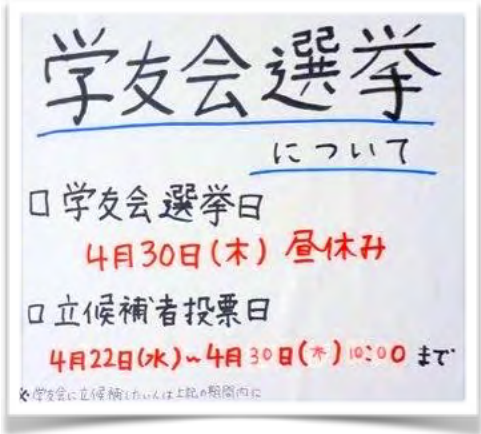 学友会選挙
について
□ 学友会選挙日
4月30日(木) 昼休み
□ 立候補者投票日
4月22日(水)~4月30日(木)10:00 まで
※学友会に立候補したい人は上記の期間内に